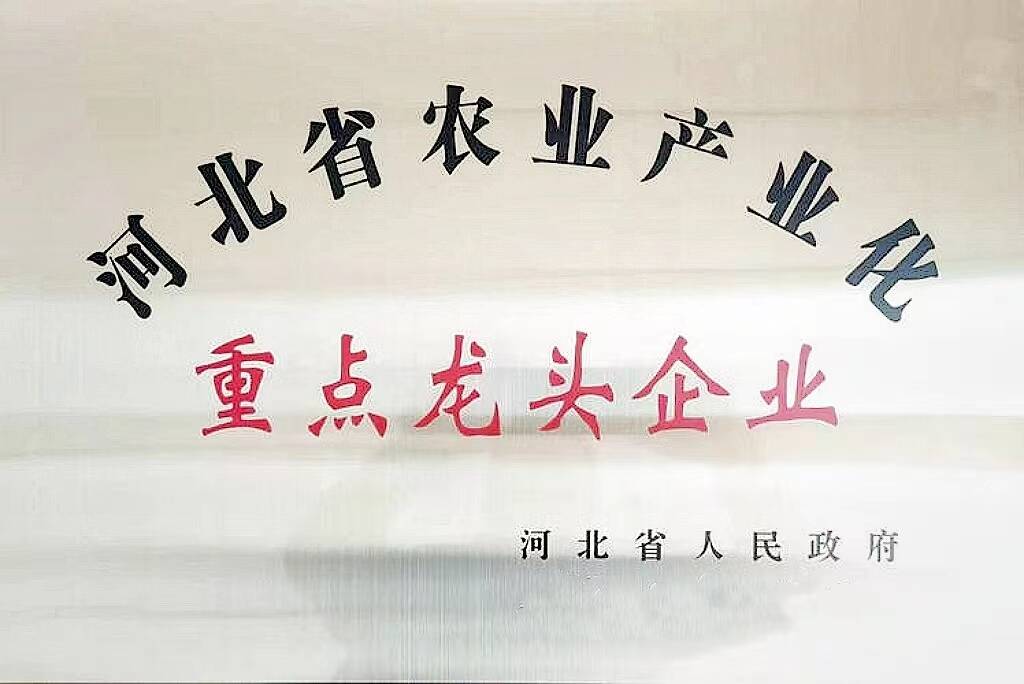 河北省农业产业化
重点龙头企业
河北省人民政府